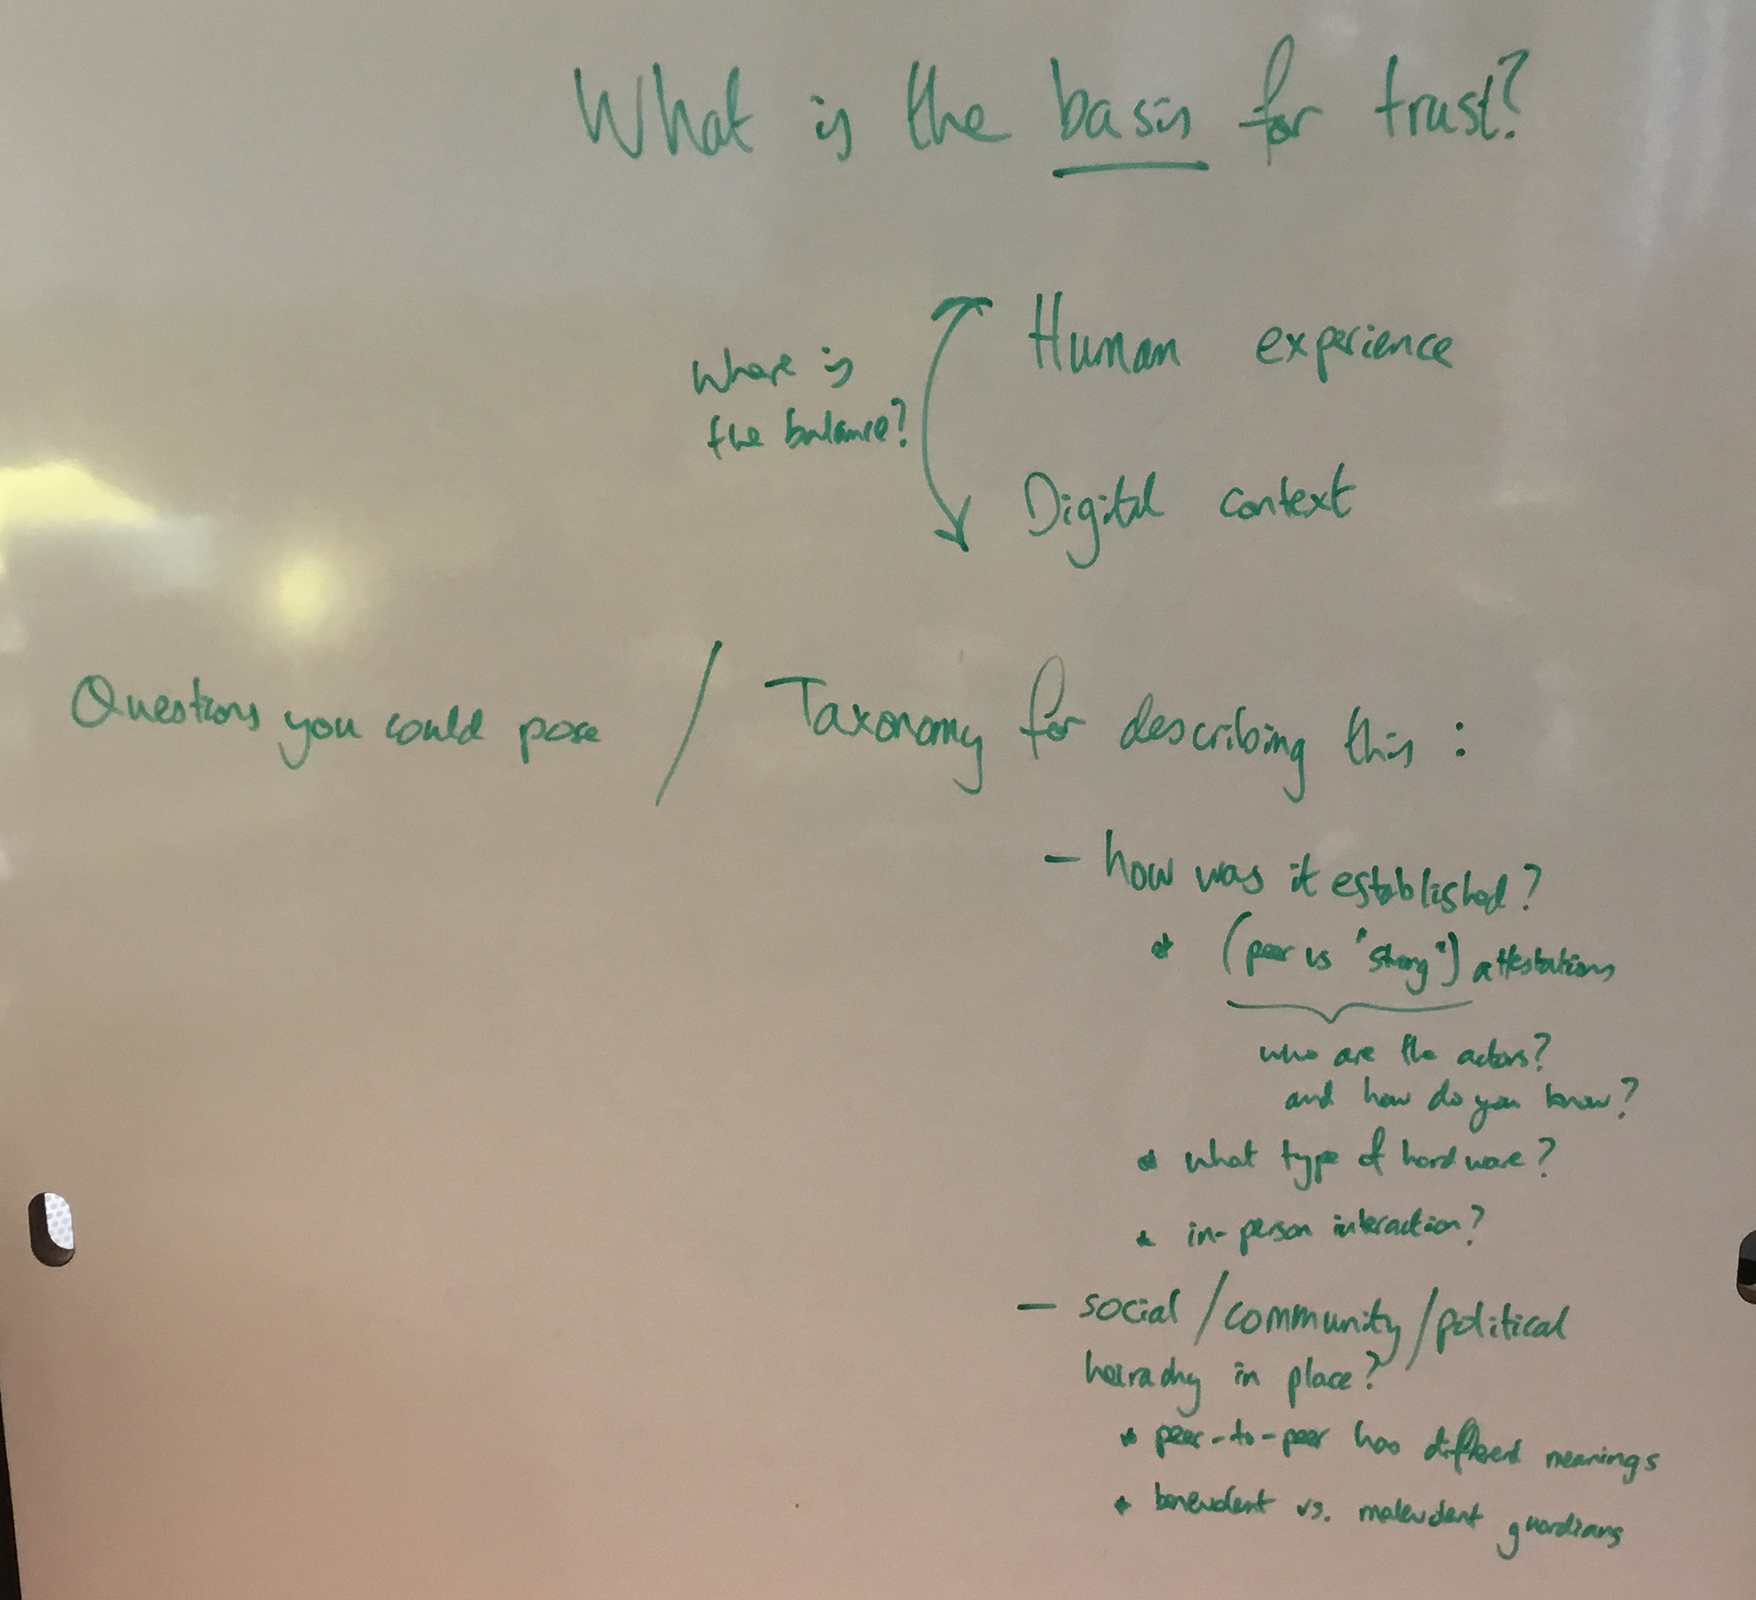 What is the basis for trust?
Where is
the balance?
Human experience
Digital context
Questions you could pose / Taxonomy for describing this :
- how was it established?
* (peer vs "strong") attestations
who are the actors?
and how do you know?
* what type of hardware?
* in-person interaction?
- social / community / political
heirachy in place?
* peer-to-peer has different meanings
* benevolent vs. malevolent guardians